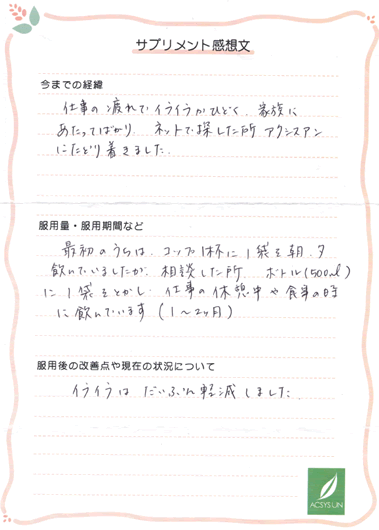 サプリメント感想文
今までの経緯
仕事の疲れでイライラがひどく、家族に
あたってばかり、ネットで探した所 アクシスアン
にたどり着きました。
服用量・服用期間など
最初のうちは、コップ1杯に1袋を朝・夕
飲んでいましたが、相談した所 ボトル(500ml)
に1袋をとかし、仕事の休憩中や食事の時
に飲んでいます(1〜2ヶ月)
服用後の改善点や現在の状況について
イライラはだいぶん軽減しました。
ACSYS UN